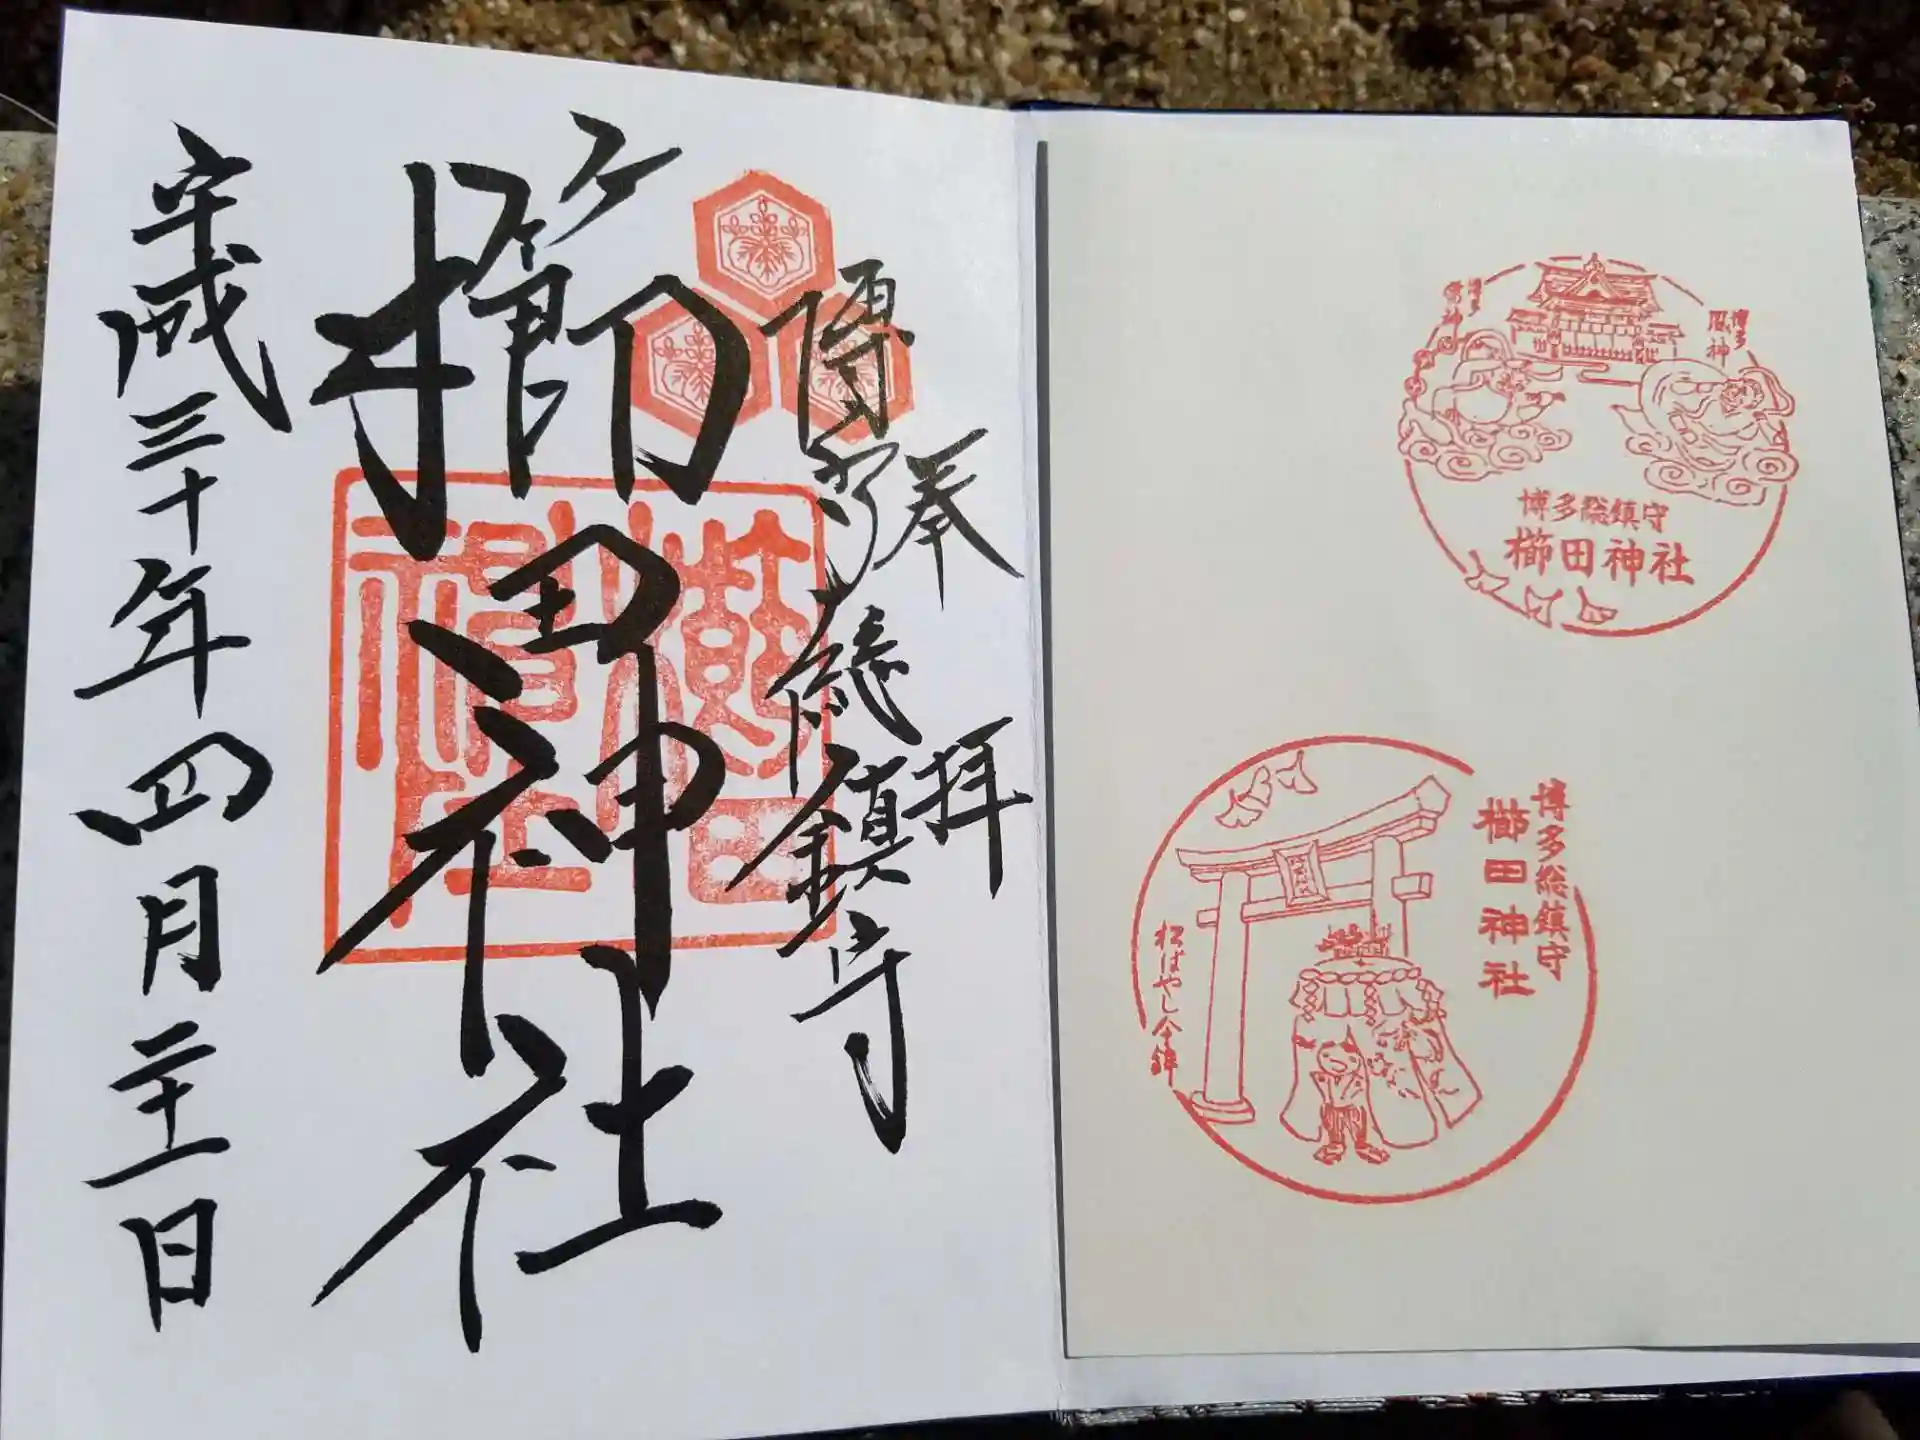 奉拝
博多総鎮守
櫛田神社
平成三十年四月二十一日
櫛田神社
博多
風神
博多
雷神
博多総鎮守
櫛田神社
博多総鎮守
櫛田神社
松ばやし傘鉾